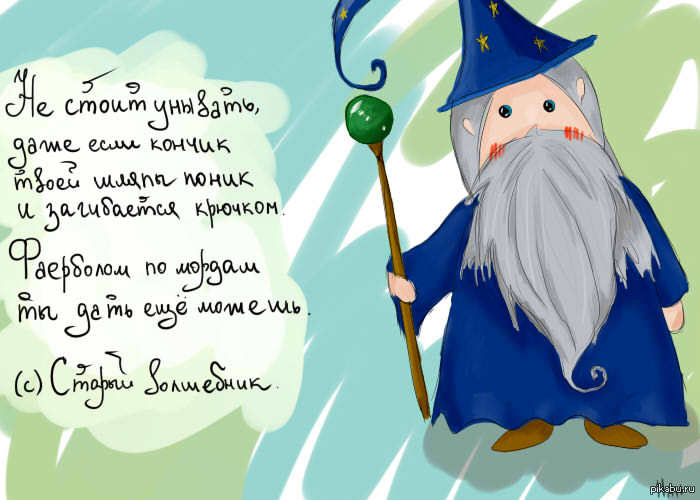 Не стоит унывать,
даже если кончик
твоей шляпы поник
и загибается крючком.
Фаерболом по мордам
ты дать ещё можешь.
(с) Старый волшебник.
pikabu.ru